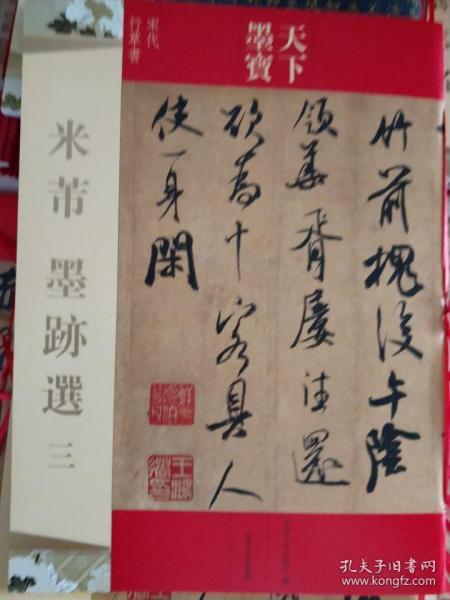 天下
墨寶
宋代
行草書
竹前槐後午陰
領華胥屢往還
欲為十客具人
使一身閑
米芾墨跡選三
孔夫子旧书网
www.kongfz.com